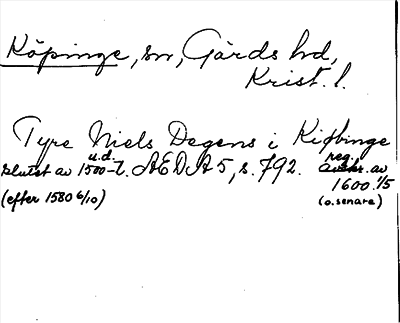 Köpinge, sn, Gärds hd,
Krist. l.
Tyre Niels Degens i Kiøbinge
u.d. reg.
slutet av 1500-t. ÆDA 5, s. 792. avskr. av
1600 1/5
(efter 1580 6/10) (o. senare)